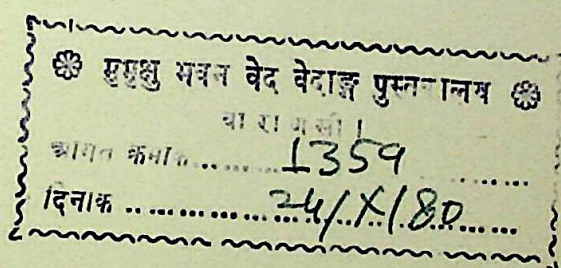 मुमुक्षु भवन वेद वेदाङ्ग पुस्तकालय
वाराणसी ।
आगत क्रमांक ........ 1359 ........
दिनांक .................. 24/X/80 .........